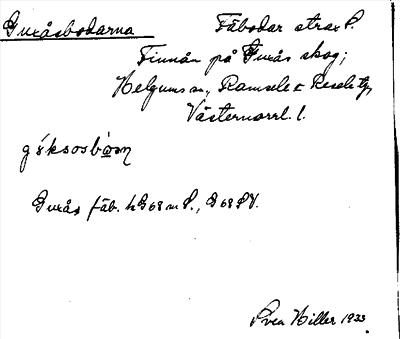 Guxåsbodarna Fäbodar strax S.
Finnån på Guxås skog;
Helgums sn, Ramsele o Resele tg,
Västernorrl. l.
Guxås fäb. h G68 m S., G 68 SV.
Svea Hiller 1933.